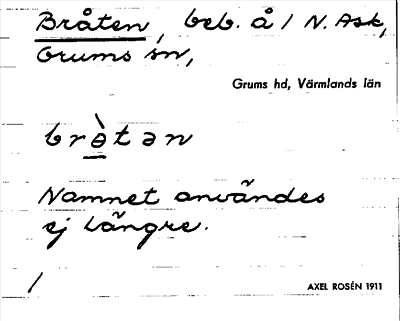 Bråten, beb. å / N. Ask,
Grums sn,
Grums hd, Värmlands län
brə̀tən
Namnet användes
ej längre.
/
AXEL ROSÉN 1911